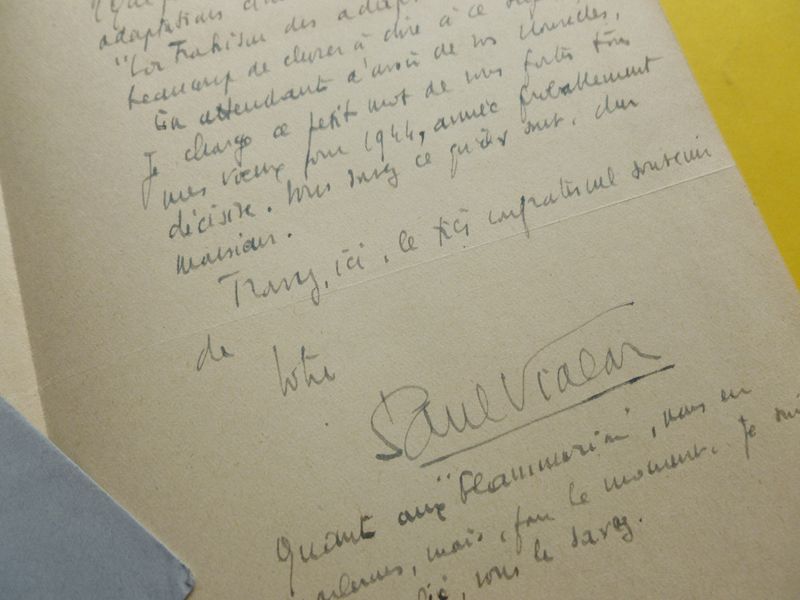 adaptations
"La Trahison des adapt
beaucoup de choses à dire à ce suj
En attendant d'avoir de vos nouvelles,
je charge ce petit mot de vous porter tous
mes vœux pour 1944, année probablement
décisive. Vous savez ce qu'ils sont, cher
monsieur.
Trouvez, ici, le très confraternel souvenir
de votre
Paul Vialar
Quant aux "Flammarion", nous en
mais, pour le moment. Je sui
vous le savez.